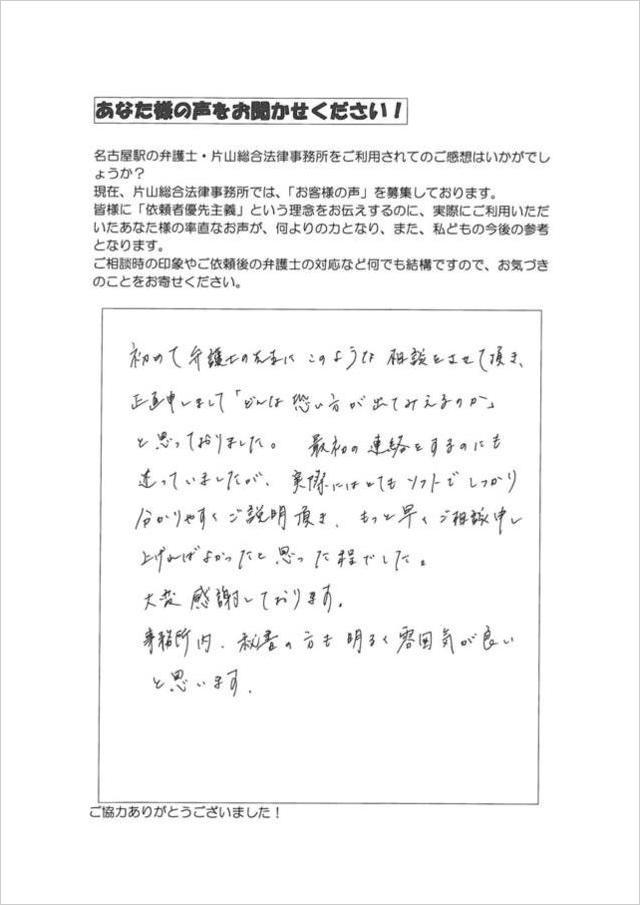 あなた様の声をお聞かせください！
名古屋駅の弁護士・片山総合法律事務所をご利用されてのご感想はいかがでし
ょうか？
現在、片山総合法律事務所では、「お客様の声」を募集しております。
皆様に「依頼者優先主義」という理念をお伝えするのに、実際にご利用いただ
いたあなた様の率直なお声が、何よりの力となり、また、私どもの今後の参考
となります。
ご相談時の印象やご依頼後の弁護士の対応など何でも結構ですので、お気づき
のことをお寄せください。
初めて弁護士の先生にこのような相談をさせて頂き、
正直申しまして「どんな恐い方が出てみえるのか」
と思っておりました。 最初の連絡をするのにも
迷っていましたが、実際にはとてもソフトでしっかり
分かりやすくご説明頂き、もっと早くご相談申し
上げればよかったと思った程でした。
大変感謝しております。
事務所内、秘書の方も明るく雰囲気が良い
と思います。
ご協力ありがとうございました！